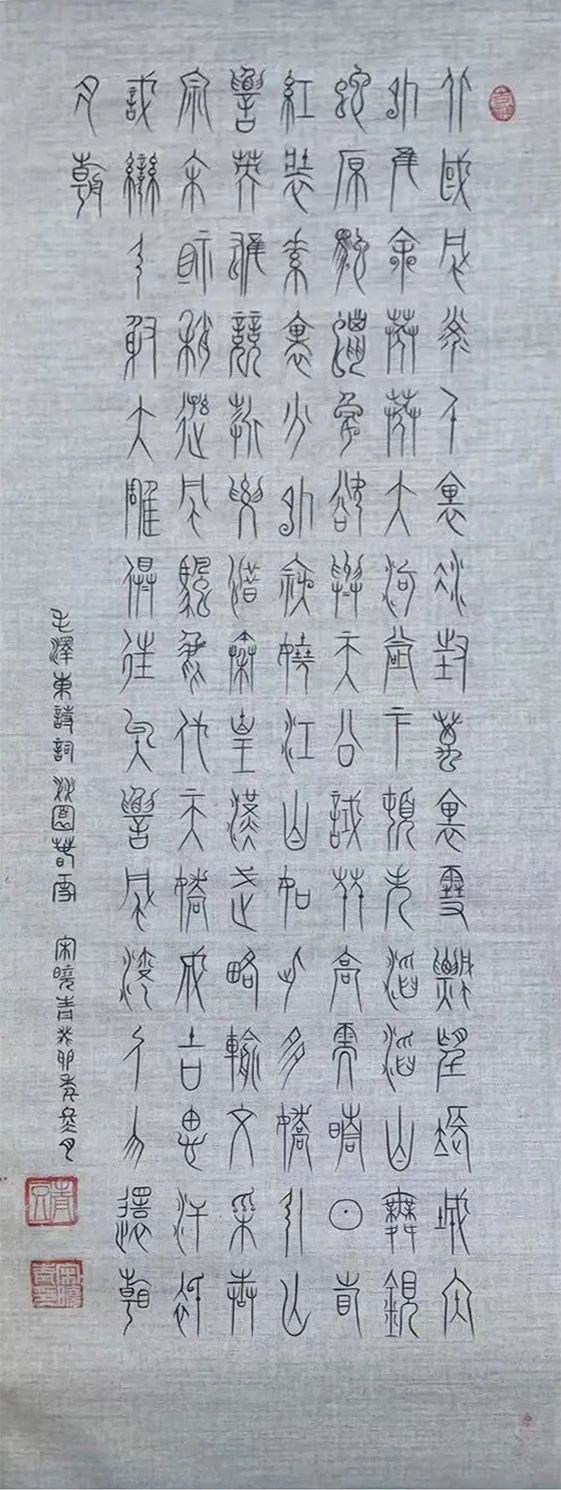 北國風光千裏冰封萬裏雪飄望長城內
外惟余莽莽大河上下頓失滔滔山舞銀
蛇原馳蠟象欲與天公試比高須晴日看
紅裝素裹分外妖嬈江山如此多嬌引無
數英雄競折腰惜秦皇漢武略輸文采唐
宗宋祖稍遜風騷一代天驕成吉思汗只
識彎弓射大雕俱往矣數風流人物還看
今朝
毛澤東詩詞沁園春雪 宋曉青癸卯年月